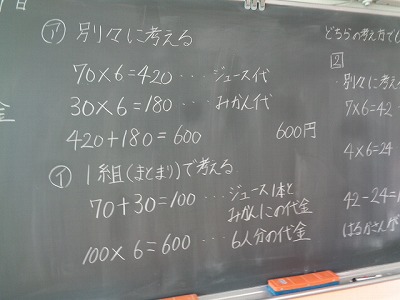 ㋐ 別々に考える
70×6=420 ・・・ジュース代
30×6=180 ・・・みかん代
420+180=600 600円
㋑ 1組(まとまり)で考える
70+30=100 ・・・ジュース1本と
みかん1この代金
100×6=600 ・・・6人分の代金
金
どちらの考え方でし
2
・別々に考え
7×6=42
4×6=24
42-24=1
はるかさんが